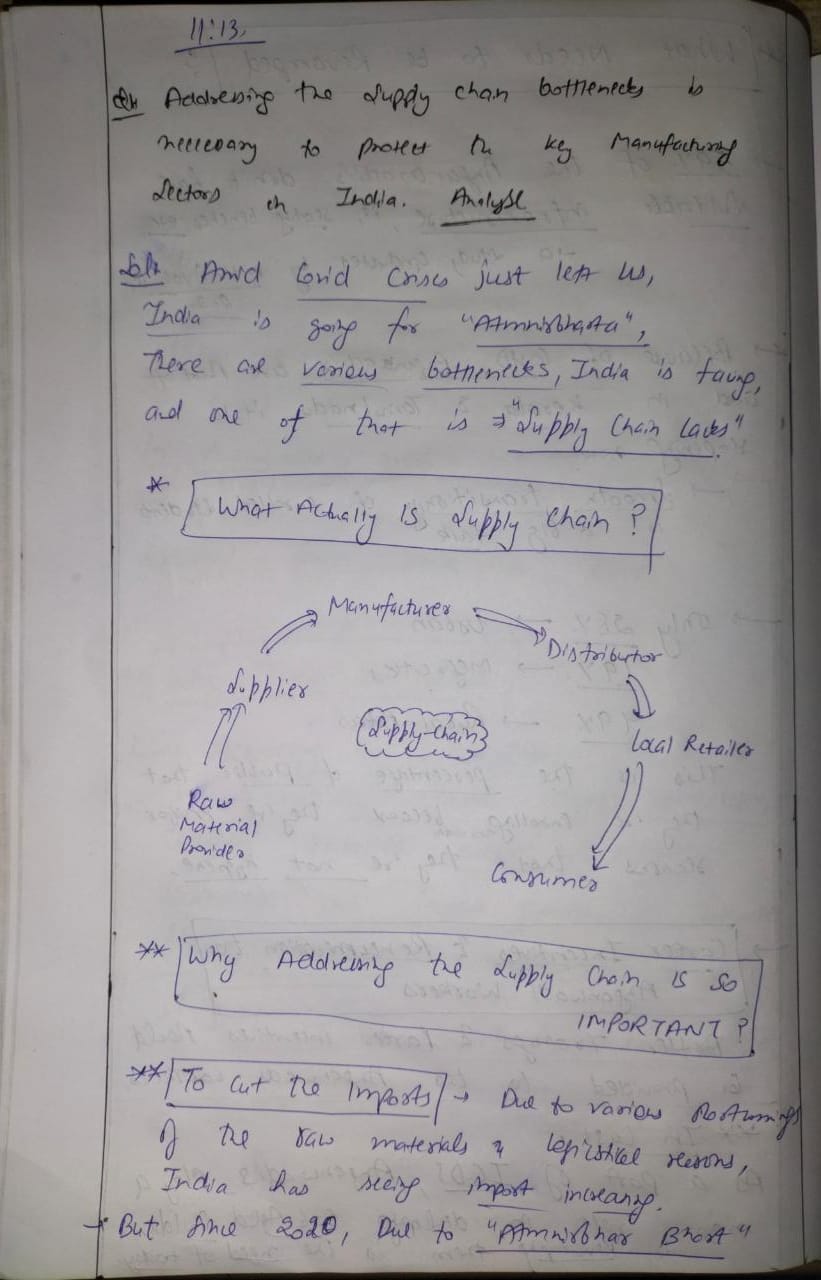 11:13.
Qn Addressing the Supply chain bottlenecks is
necessary to protect the key Manufacturing
Sectors in India. Analyse
Soln Amid Covid Crises just left us,
India is going for "Atmnirbharta",
There are various bottlenecks, India is facing,
and one of that is → "Supply Chain Lacks"
* What Actually is Supply chain ?
Manufacturer
Distributor
Supplier
Supply-chain
Local Retailer
Raw
Material
Provider
Consumer
** Why Addressing the Supply Chain is so
IMPORTANT ?
** To cut the Imports → Due to various Shortcomings
of the raw materials & logistical reasons,
India has seeing import increasing.
→ But since 2020, Due to "Atmnirbhar Bhart"